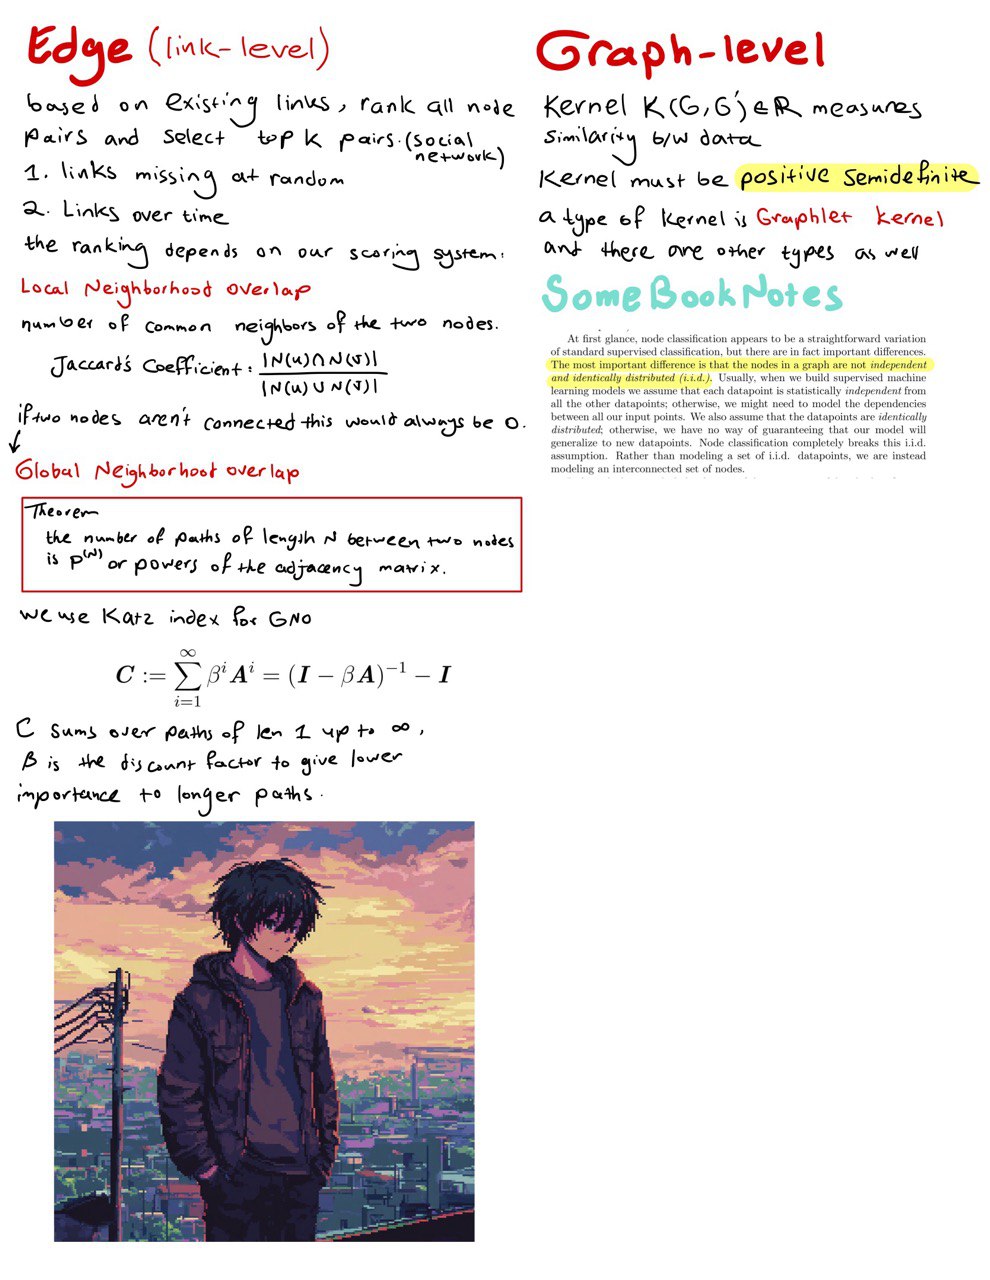 Edge (link-level)
based on existing links, rank all node
pairs and select top k pairs. (social
network)
1. links missing at random
2. Links over time
the ranking depends on our scoring system:
Local Neighborhood overlap
number of common neighbors of the two nodes.
Jaccard's Coefficient: |N(u)∩N(v)|
|N(u)∪N(v)|
if two nodes aren't connected this would always be 0.
Global Neighborhood overlap
Theorem
the number of paths of length N between two nodes
is P^(N) or powers of the adjacency matrix.
we use Katz index for GNO
C := ∑_{i=1}^{∞} β^i A^i = (I − βA)^{−1} − I
C sums over paths of len 1 up to ∞,
β is the discount factor to give lower
importance to longer paths.
Graph-level
Kernel K(G,G')∈ℝ measures
similarity b/w data
Kernel must be positive semidefinite
a type of kernel is Graphlet kernel
and there are other types as well
Some Book Notes
At first glance, node classification appears to be a straightforward variation
of standard supervised classification, but there are in fact important differences.
The most important difference is that the nodes in a graph are not independent
and identically distributed (i.i.d.). Usually, when we build supervised machine
learning models we assume that each datapoint is statistically independent from
all the other datapoints; otherwise, we might need to model the dependencies
between all our input points. We also assume that the datapoints are identically
distributed; otherwise, we have no way of guaranteeing that our model will
generalize to new datapoints. Node classification completely breaks this i.i.d.
assumption. Rather than modeling a set of i.i.d. datapoints, we are instead
modeling an interconnected set of nodes.